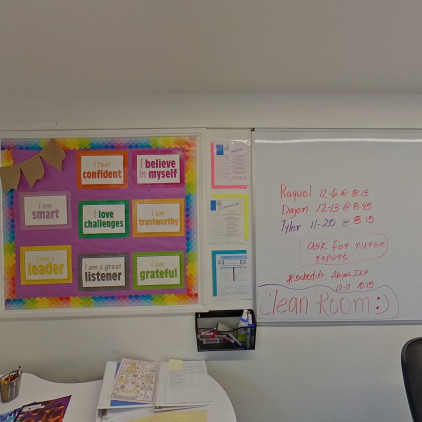 I feel
confident
I believe
in myself
I am
smart
I love
challenges
I am
trustworthy
I am a
leader
I am a great
listener
I am
grateful
Raquel 12-6 @ 8:15
Dajon 12-13 @ 8:45
Tyler 11-20 @ 8:15
ask for nurse
report
Clean Room :)